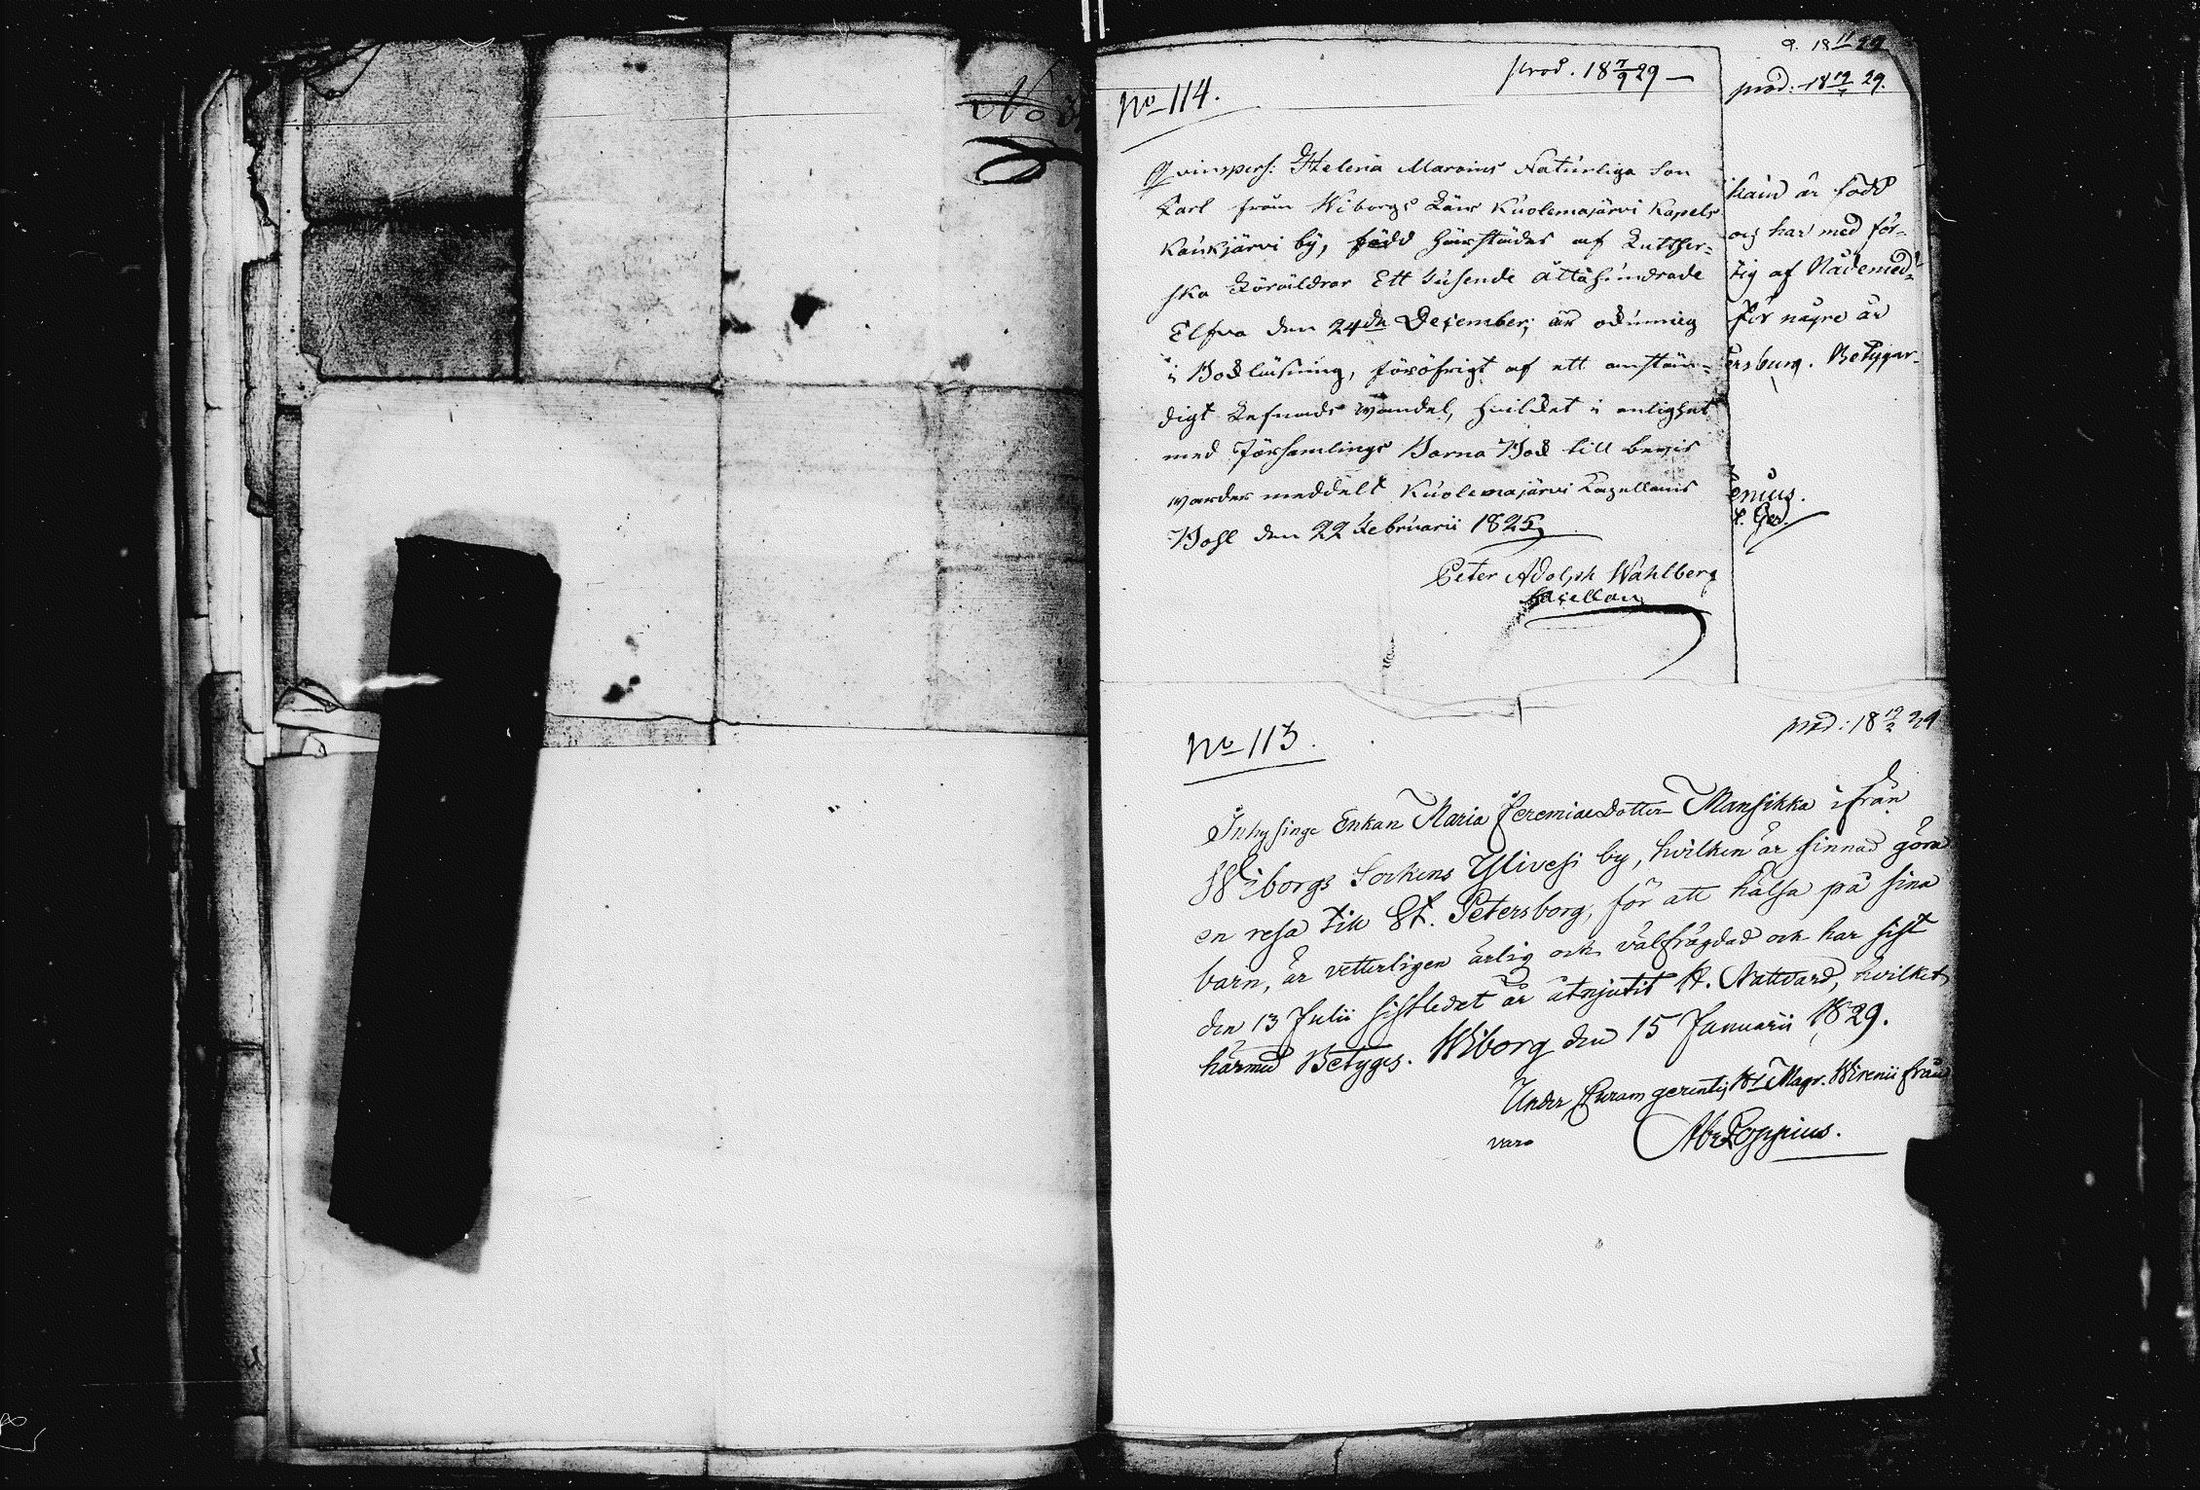 No 114.
prod. 18 7/9 29
Qvinspers: Helena Marains Naturliga Son
Carl från Wiborgs Län Kuolemajärvi Kapels
Kaukjärvi by, född härstädes af Luther-
ska Föräldrar Ett tusende åttahundrade
Elfva den 24de December; är okunnig
i Bokläsning, föröfrigt af ett anstän-
digt Lefnads wandel, hvilket i enlighet
med Församlings Barna Bok till bevis
warder meddelt Kuolemajärvi Capellans
Bohl den 22 Februarii 1825
Peter Adolph Wahlberg
Capellan
a. 18 11 29
prod. 18 19 29.
han är född
och har med för-
tig af Nådemed-
för några år
ersburg. Betygar
enius.
No 113.
prod: 18 19/2 29
Inhysinge Enkan Maria Jeremiaedotter Mansikka ifrån
Wiborgs Sockens Ylivesi by, hvilken är sinnad göra
en resa till St. Petersborg, för att hälsa på sina
barn, är vetterligen ärlig och välfrägdad och har sist
den 13 Julii sistledet år åtnjutit H. Nattvard, hvilket
härmed Betyges. Wiborg den 15 Januarii 1829.
Under Curam gerentis Hr Magr. Wirenii från
varo
Abr Poppius.